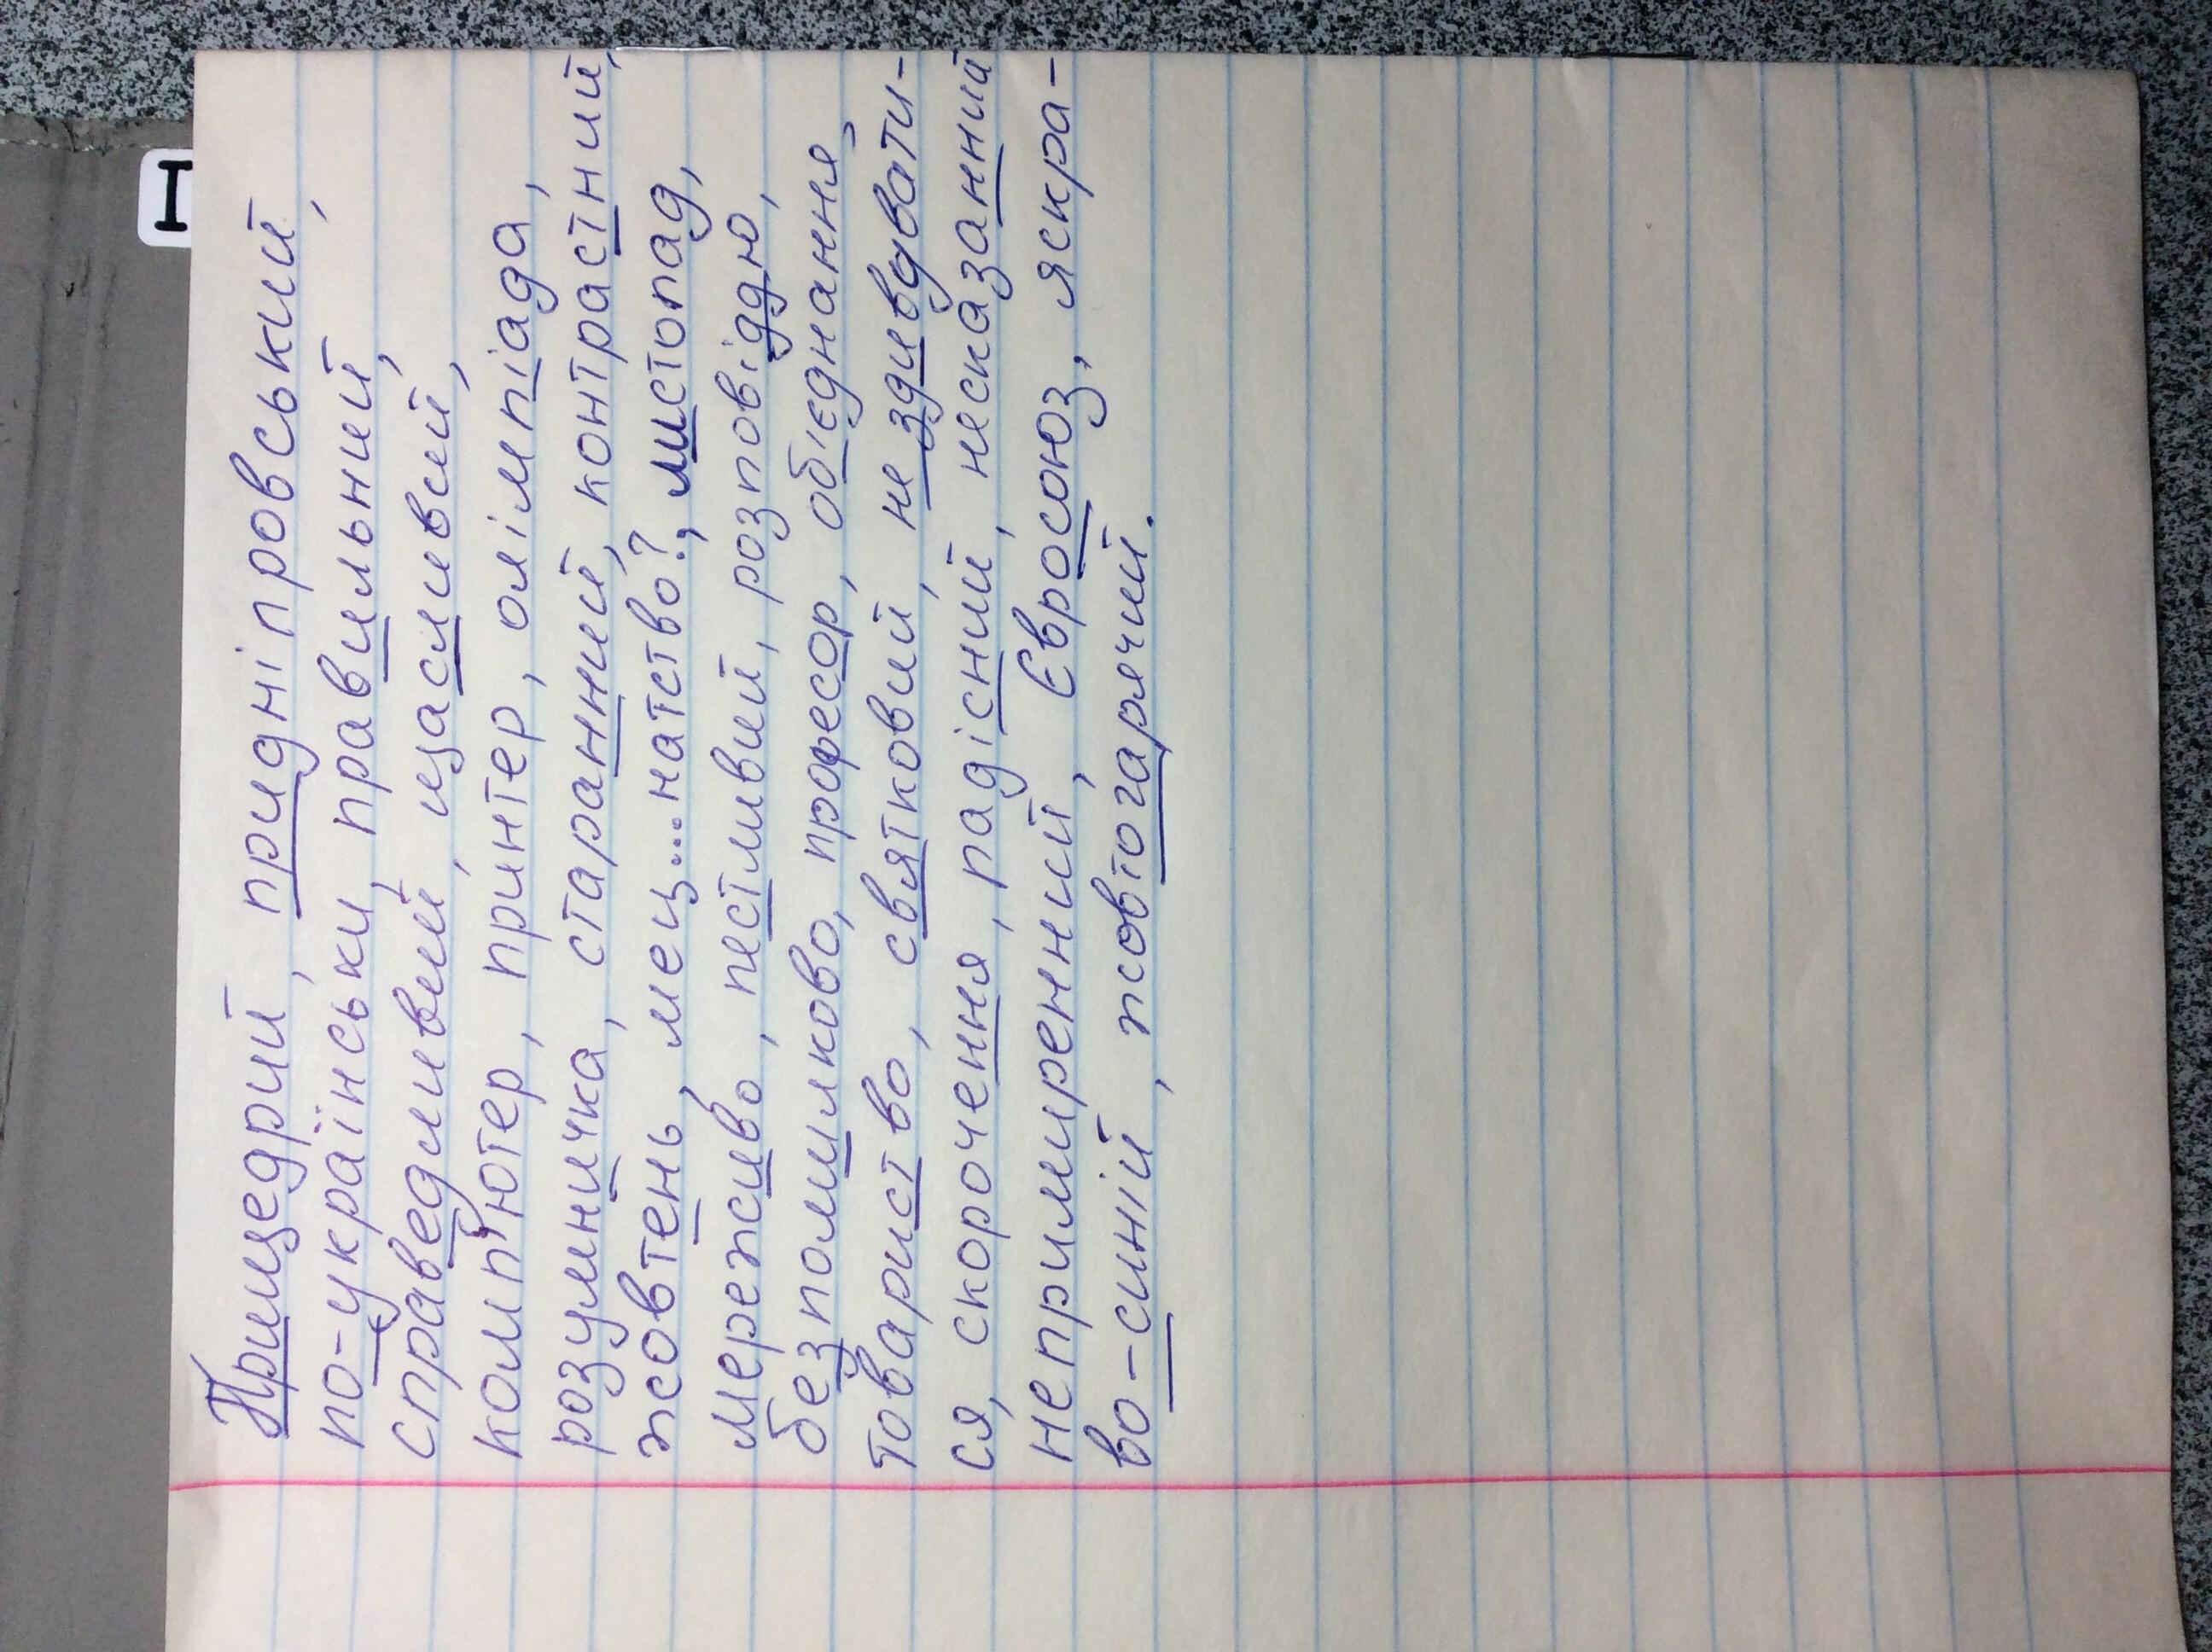 Прищедрий, придніпровський,
по-українськи, правильний,
справедливий, щасливий,
комп'ютер, принтер, олімпіада,
розумничка, старанний, контрастний,
жовтень, мец...натство?, листопад,
мереживо, пестливий, розповіддю,
безпомилково, професор, об'єднання,
товариство, святковий, не здивувати-
ся, скорочення, радісний, несказанний
непримиренний, Євросоюз, яскра-
во-синій, жовтогарячий.
I